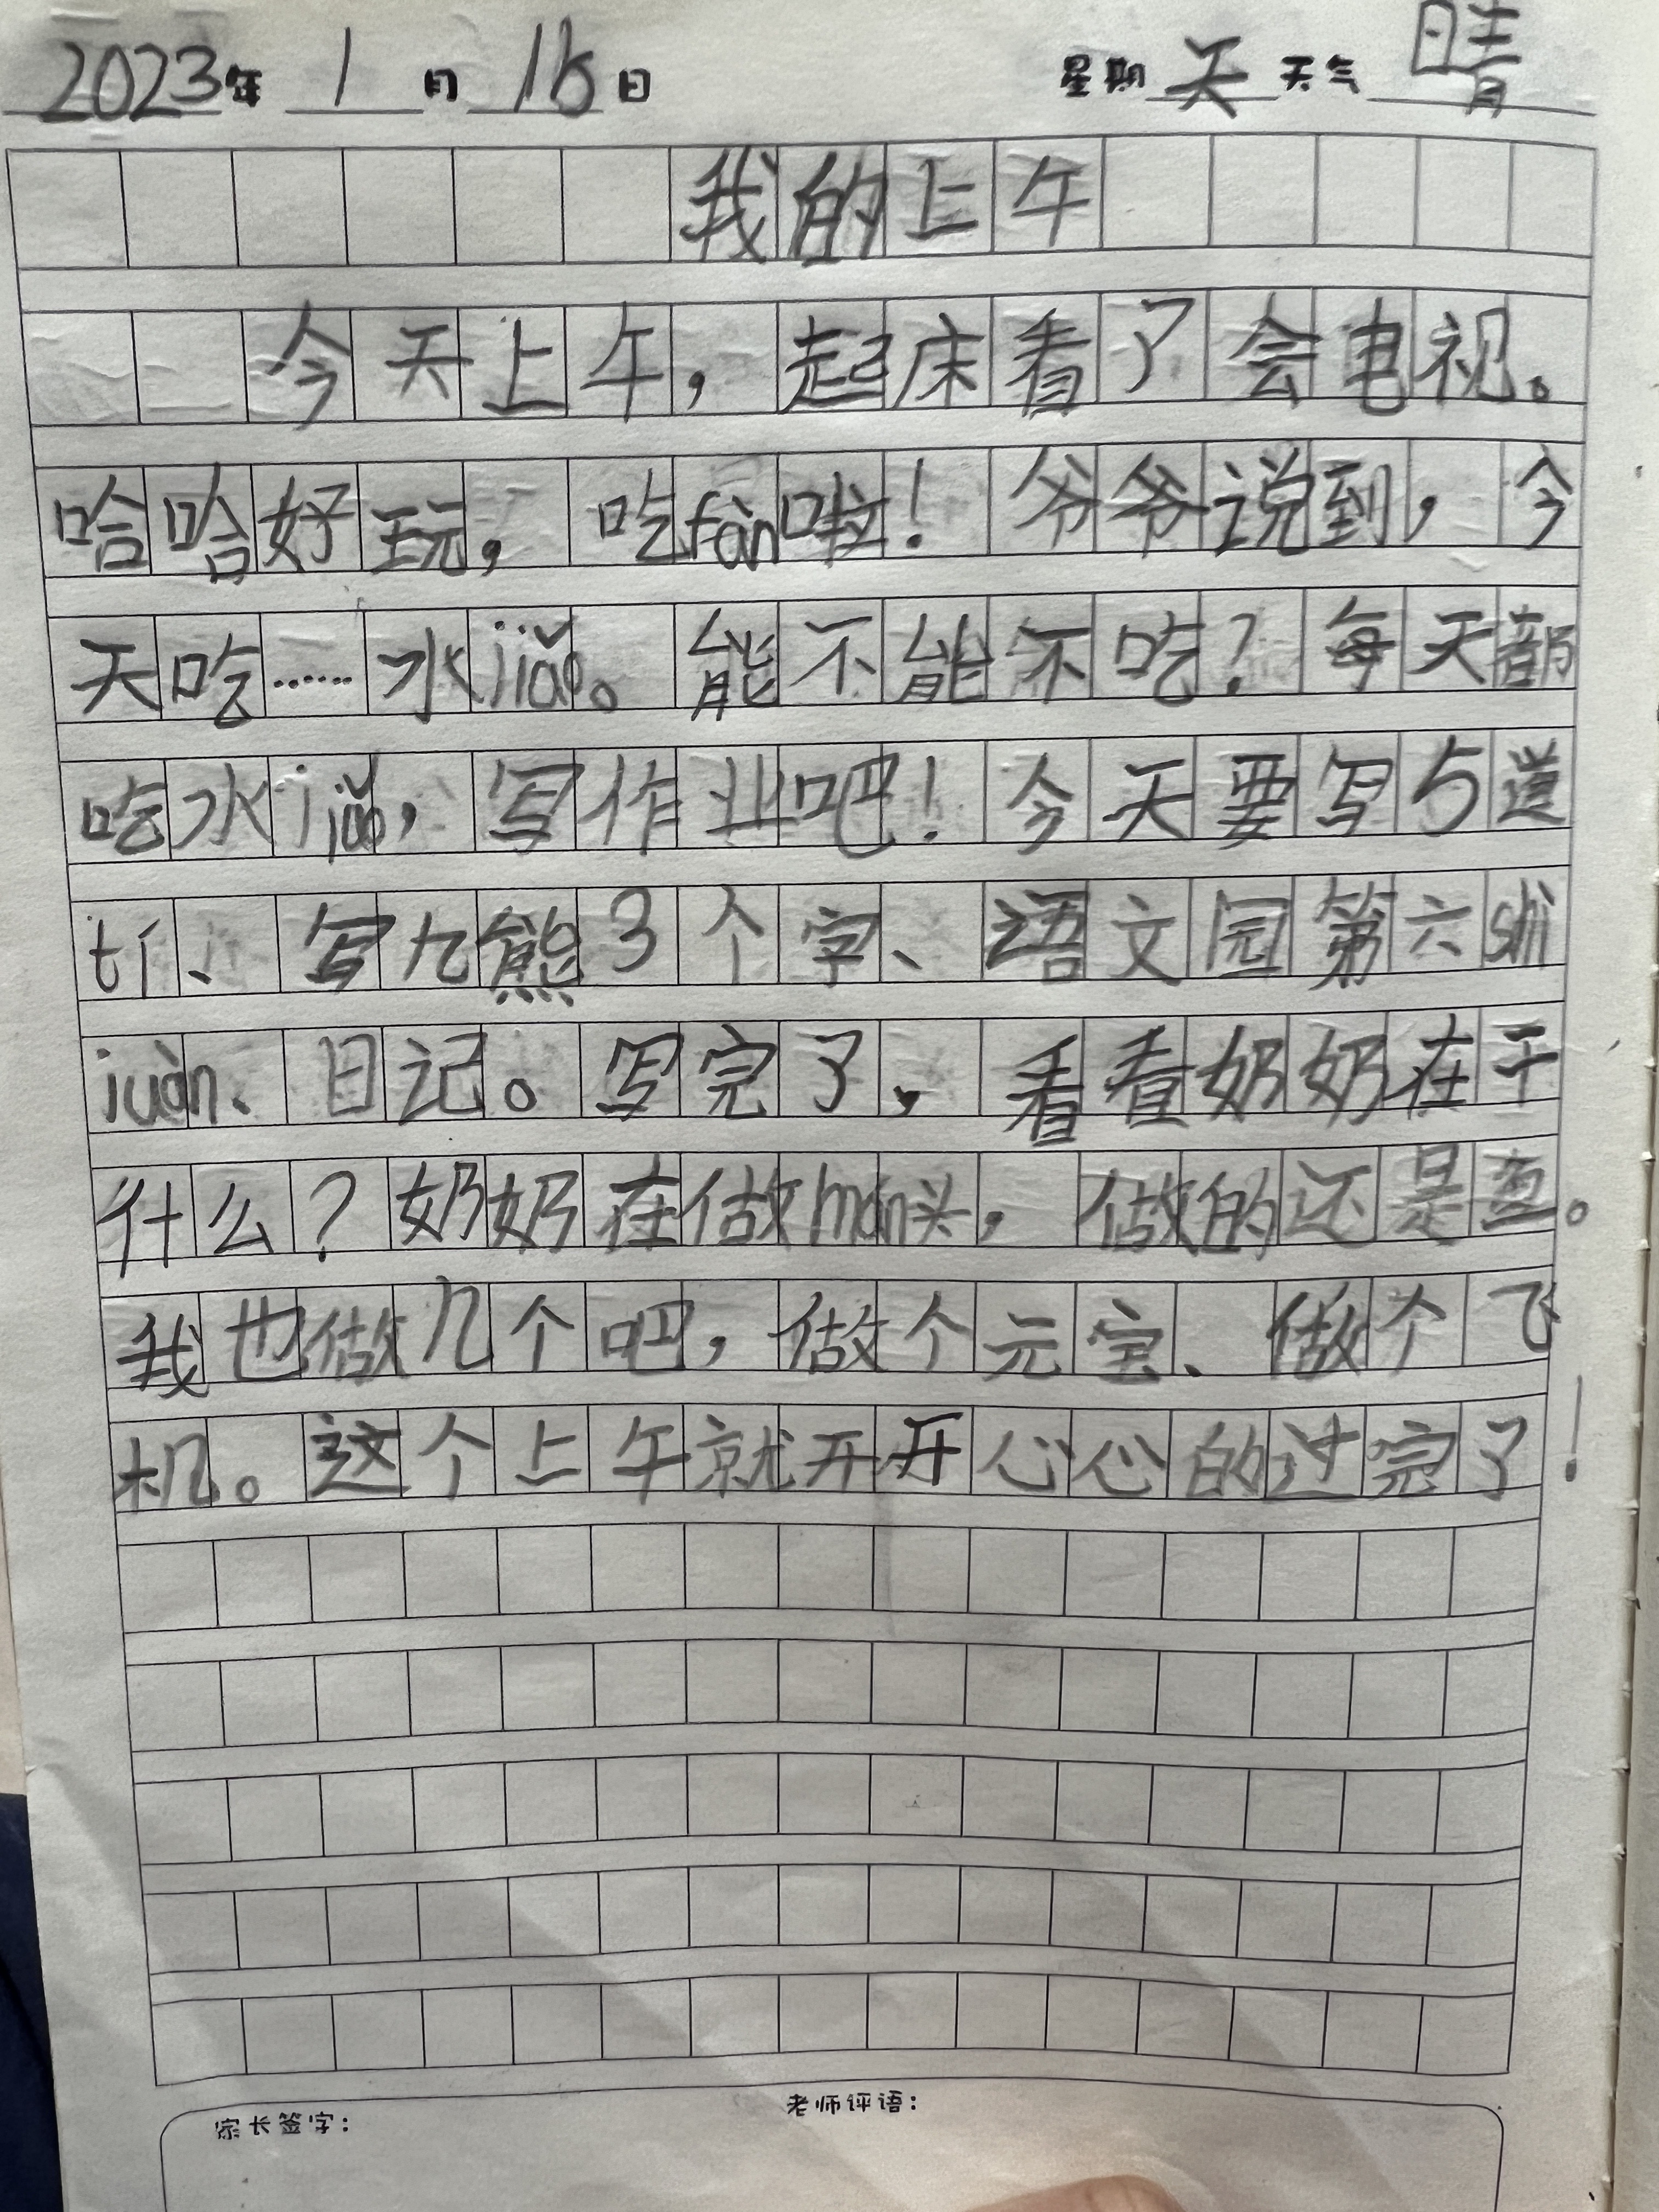 2023年 1 月 15 日 星期 天 天气 晴
我的上午
今天上午，起床看了会电视。
哈哈好玩，吃fàn啦！爷爷说到，今
天吃……水jiǎo。能不能不吃？每天都
吃水jiǎo，写作业吧！今天要写5道
tí、写九熊3个字、语文园第六shì
juàn、日记。写完了，看看奶奶在干
什么？奶奶在做mán头，做的还是鱼。
我也做几个吧，做个元宝、做个飞
机。这个上午就开开心心的过完了！
家长签字：
老师评语：